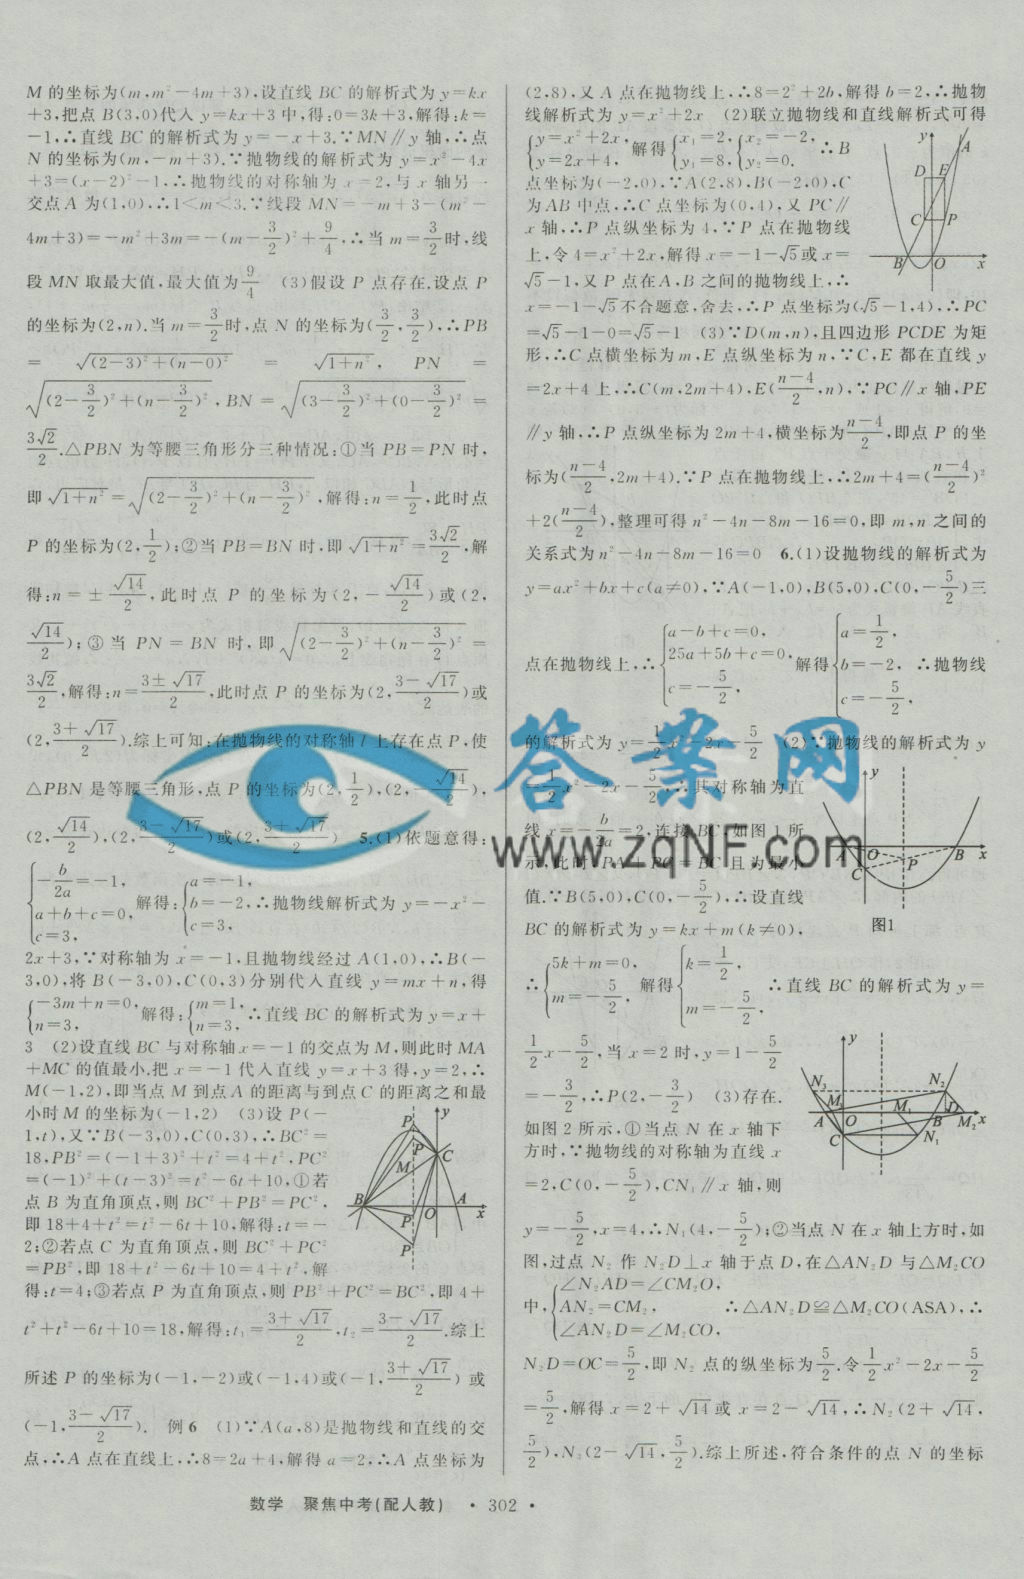 M的坐标为(m,m²-4m+3),设直线BC的解析式为y=kx
+3,把点B(3,0)代入y=kx+3中,得:0=3k+3,解得:k=
-1,∴直线BC的解析式为y=-x+3.∵MN∥y轴,∴点
N的坐标为(m,-m+3).∵抛物线的解析式为y=x²-4x
+3=(x-2)²-1,∴抛物线的对称轴为x=2,与x轴另一
交点A为(1,0),∴1<m<3.∵线段MN=-m+3-(m²-
4m+3)=-m²+3m=-(m-3/2)²+9/4,∴当m=3/2时,线
段MN取最大值,最大值为9/4 (3)假设P点存在.设点P
的坐标为(2,n).当m=3/2时,点N的坐标为(3/2,3/2),∴PB
=√((2-3)²+(n-0)²)=√(1+n²),PN=
√((2-3/2)²+(n-3/2)²),BN=√((3-3/2)²+(0-3/2)²)=
3√2/2.△PBN为等腰三角形分三种情况:①当PB=PN时,
即√(1+n²)=√((2-3/2)²+(n-3/2)²),解得:n=1/2,此时点
P的坐标为(2,1/2);②当PB=BN时,即√(1+n²)=3√2/2,解
得:n=±√14/2,此时点P的坐标为(2,-√14/2)或(2,
√14/2);③当PN=BN时,即√((2-3/2)²+(n-3/2)²)=
3√2/2,解得:n=(3±√17)/2,此时点P的坐标为(2,(3-√17)/2)或
(2,(3+√17)/2).综上可知:在抛物线的对称轴l上存在点P,使
△PBN是等腰三角形,点P的坐标为(2,1/2),(2,-√14/2),
(2,√14/2),(2,(3-√17)/2)或(2,(3+√17)/2) 5.(1)依题意得:
{-b/2a=-1, a+b+c=0, c=3, 解得:{a=-1, b=-2, c=3, ∴抛物线解析式为y=-x²-
2x+3,∵对称轴为x=-1,且抛物线经过A(1,0),∴B(-
3,0),将B(-3,0),C(0,3)分别代入直线y=mx+n,得
{-3m+n=0, n=3, 解得:{m=1, n=3, ∴直线BC的解析式为y=x+
3 (2)设直线BC与对称轴x=-1的交点为M,则此时MA
+MC的值最小.把x=-1代入直线y=x+3得,y=2,∴
M(-1,2),即当点M到点A的距离与到点C的距离之和最
小时M的坐标为(-1,2) (3)设P(-
1,t),又∵B(-3,0),C(0,3),∴BC²=
18,PB²=(-1+3)²+t²=4+t²,PC²
=(-1)²+(t-3)²=t²-6t+10,①若
点B为直角顶点,则BC²+PB²=PC²,
即18+4+t²=t²-6t+10,解得:t=-
2;②若点C为直角顶点,则BC²+PC²
=PB²,即18+t²-6t+10=4+t²,解
得:t=4;③若点P为直角顶点,则PB²+PC²=BC²,即4+
t²+t²-6t+10=18,解得:t₁=(3+√17)/2,t₂=(3-√17)/2.综上
所述P的坐标为(-1,-2)或(-1,4)或(-1,(3+√17)/2)或
(-1,(3-√17)/2). 例6 (1)∵A(a,8)是抛物线和直线的交
点,∴A点在直线上,∴8=2a+4,解得a=2,∴A点坐标为
y
P
P
C
M
B
P
O
A
x
P
(2,8),又A点在抛物线上,∴8=2²+2b,解得b=2,∴抛物
线解析式为y=x²+2x (2)联立抛物线和直线解析式可得
{y=x²+2x, y=2x+4, 解得{x₁=2, y₁=8, {x₂=-2, y₂=0. ∴B
点坐标为(-2,0),∵A(2,8),B(-2,0),C
为AB中点,∴C点坐标为(0,4),又PC∥
x轴,∴P点纵坐标为4,∵P点在抛物线
上,令4=x²+2x,解得x=-1-√5或x=
√5-1,又P点在A,B之间的抛物线上,∴
x=-1-√5不合题意,舍去,∴P点坐标为(√5-1,4),∴PC
=√5-1-0=√5-1 (3)∵D(m,n),且四边形PCDE为矩
形,∴C点横坐标为m,E点纵坐标为n,∵C,E都在直线y
=2x+4上,∴C(m,2m+4),E((n-4)/2,n),∵PC∥x轴,PE
∥y轴,∴P点纵坐标为2m+4,横坐标为(n-4)/2,即点P的坐
标为((n-4)/2,2m+4).∵P点在抛物线上,∴2m+4=((n-4)/2)²
+2((n-4)/2),整理可得n²-4n-8m-16=0,即m,n之间的
关系式为n²-4n-8m-16=0 6.(1)设抛物线的解析式为
y=ax²+bx+c(a≠0),∵A(-1,0),B(5,0),C(0,-5/2)三
点在抛物线上,∴{a-b+c=0, 25a+5b+c=0, c=-5/2, 解得{a=1/2, b=-2, c=-5/2, ∴抛物线
的解析式为y=1/2x²-2x-5/2 (2)∵抛物线的解析式为y
=1/2x²-2x-5/2,∴其对称轴为直
线x=-b/2a=2,连接BC,如图1所
示,此时PA+PC=BC且为最小
值.∵B(5,0),C(0,-5/2),∴设直线
BC的解析式为y=kx+m(k≠0),
∴{5k+m=0, m=-5/2, 解得{k=1/2, m=-5/2, ∴直线BC的解析式为y=
1/2x-5/2,当x=2时,y=1-5/2
=-3/2,∴P(2,-3/2) (3)存在.
如图2所示,①当点N在x轴下
方时,∵抛物线的对称轴为直线x
=2,C(0,-5/2),CN₁∥x轴,则
y=-5/2,x=4,∴N₁(4,-5/2);②当点N在x轴上方时,如
图,过点N₂作N₂D⊥x轴于点D,在△AN₂D与△M₂CO
中,{∠N₂AD=∠CM₂O, AN₂=CM₂, ∠AN₂D=∠M₂CO, ∴△AN₂D≌△M₂CO(ASA),∴
N₂D=OC=5/2,即N₂点的纵坐标为5/2.令1/2x²-2x-5/2=
5/2,解得x=2+√14或x=2-√14,∴N₂(2+√14,
5/2),N₃(2-√14,5/2).综上所述,符合条件的点N的坐标
y
A
D
E
C
P
B
O
x
y
A
O
B
x
C
P
图1
y
N₃
N₂
M₃
M₁
D
A
B
M₂
x
C
N₁
答案网
www.zqNF.com
数学 聚焦中考(配人教) • 302 •